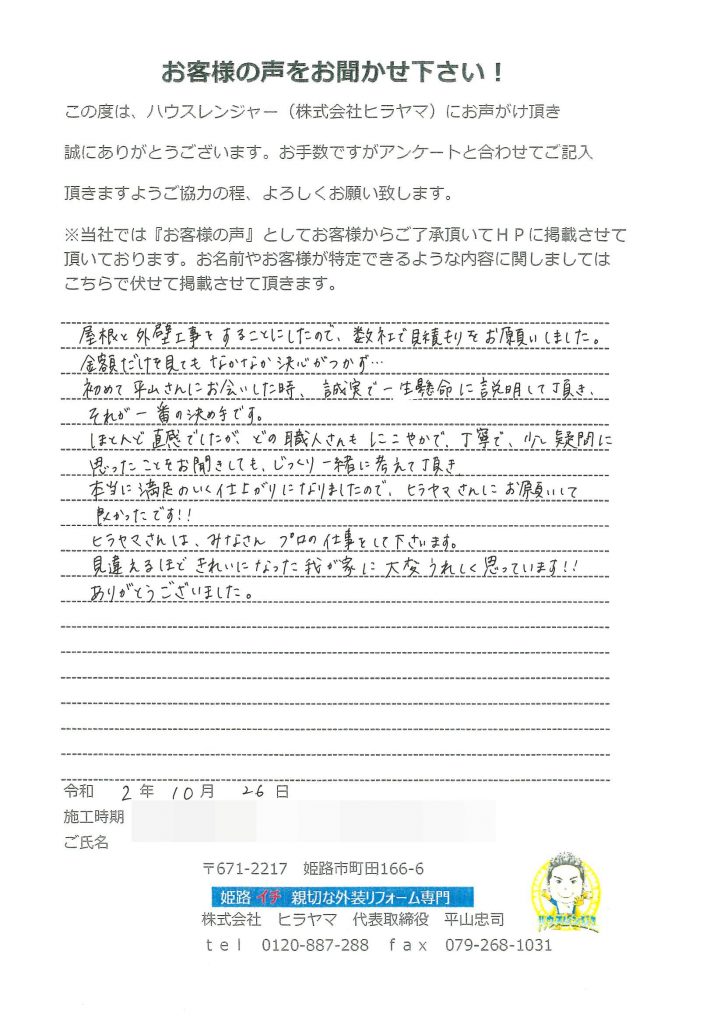 お客様の声をお聞かせ下さい！
この度は、ハウスレンジャー（株式会社ヒラヤマ）にお声がけ頂き
誠にありがとうございます。お手数ですがアンケートと合わせてご記入
頂きますようご協力の程、よろしくお願い致します。
※当社では『お客様の声』としてお客様からご了承頂いてＨＰに掲載させて
頂いております。お名前やお客様が特定できるような内容に関しましては
こちらで伏せて掲載させて頂きます。
屋根と外壁工事をすることにしたので、数社で見積もりをお願いしました。
金額だけを見てもなかなか決心がつかず…
初めて平山さんにお会いした時、誠実で一生懸命に説明して頂き、
それが一番の決め手です。
ほとんど直感でしたが、どの職人さんもにこやかで、丁寧で、少し疑問に
思ったことをお聞きしても、じっくり一緒に考えて頂き
本当に満足のいく仕上がりになりましたので、ヒラヤマさんにお願いして
良かったです!!
ヒラヤマさんは、みなさんプロの仕事をして下さいます。
見違えるほどきれいになった我が家に大変うれしく思っています!!
ありがとうございました。
令和 2年 10月 26日
施工時期
ご氏名
〒671-2217 姫路市町田166-6
姫路 イチ 親切な外装リフォーム専門
株式会社 ヒラヤマ 代表取締役 平山忠司
ｔｅｌ 0120-887-288 ｆａｘ 079-268-1031
ハウスレンジャー